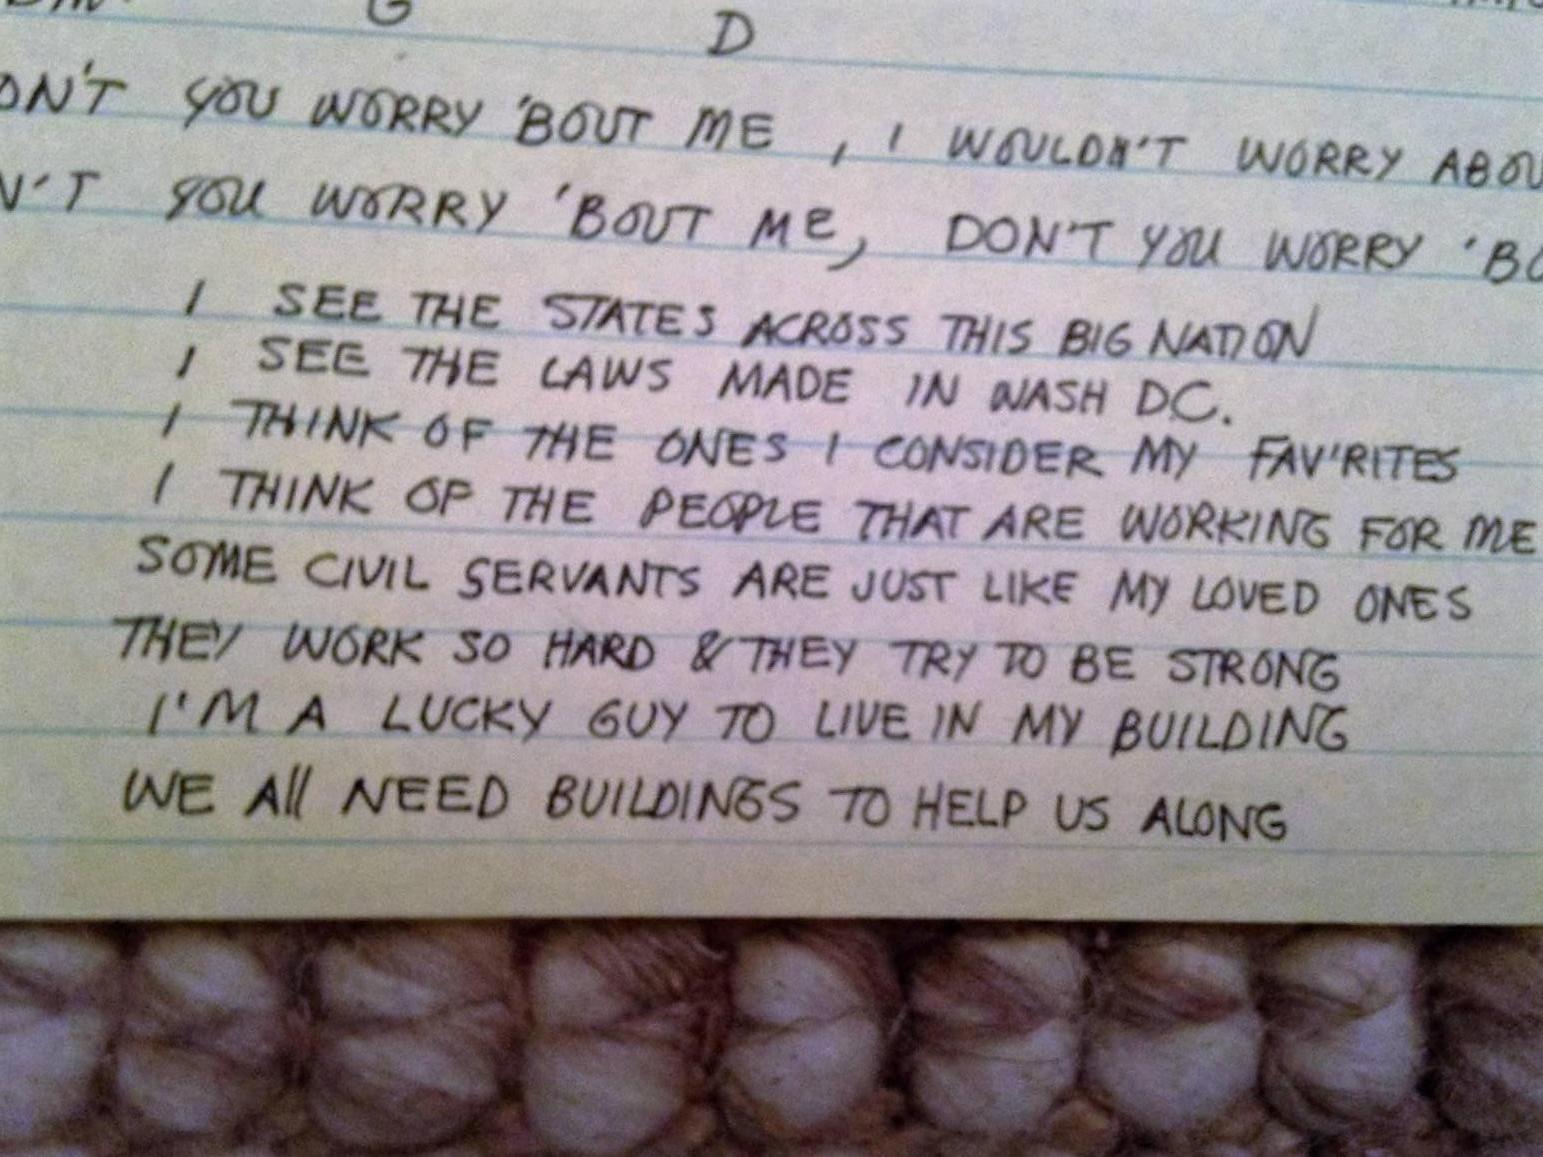 G D
ON'T YOU WORRY 'BOUT ME, I WOULDN'T WORRY ABOU
N'T YOU WORRY 'BOUT ME, DON'T YOU WORRY 'BO
I SEE THE STATES ACROSS THIS BIG NATION
I SEE THE LAWS MADE IN WASH DC.
I THINK OF THE ONES I CONSIDER MY FAV'RITES
I THINK OF THE PEOPLE THAT ARE WORKING FOR ME
SOME CIVIL SERVANTS ARE JUST LIKE MY LOVED ONES
THEY WORK SO HARD & THEY TRY TO BE STRONG
I'M A LUCKY GUY TO LIVE IN MY BUILDING
WE All NEED BUILDINGS TO HELP US ALONG